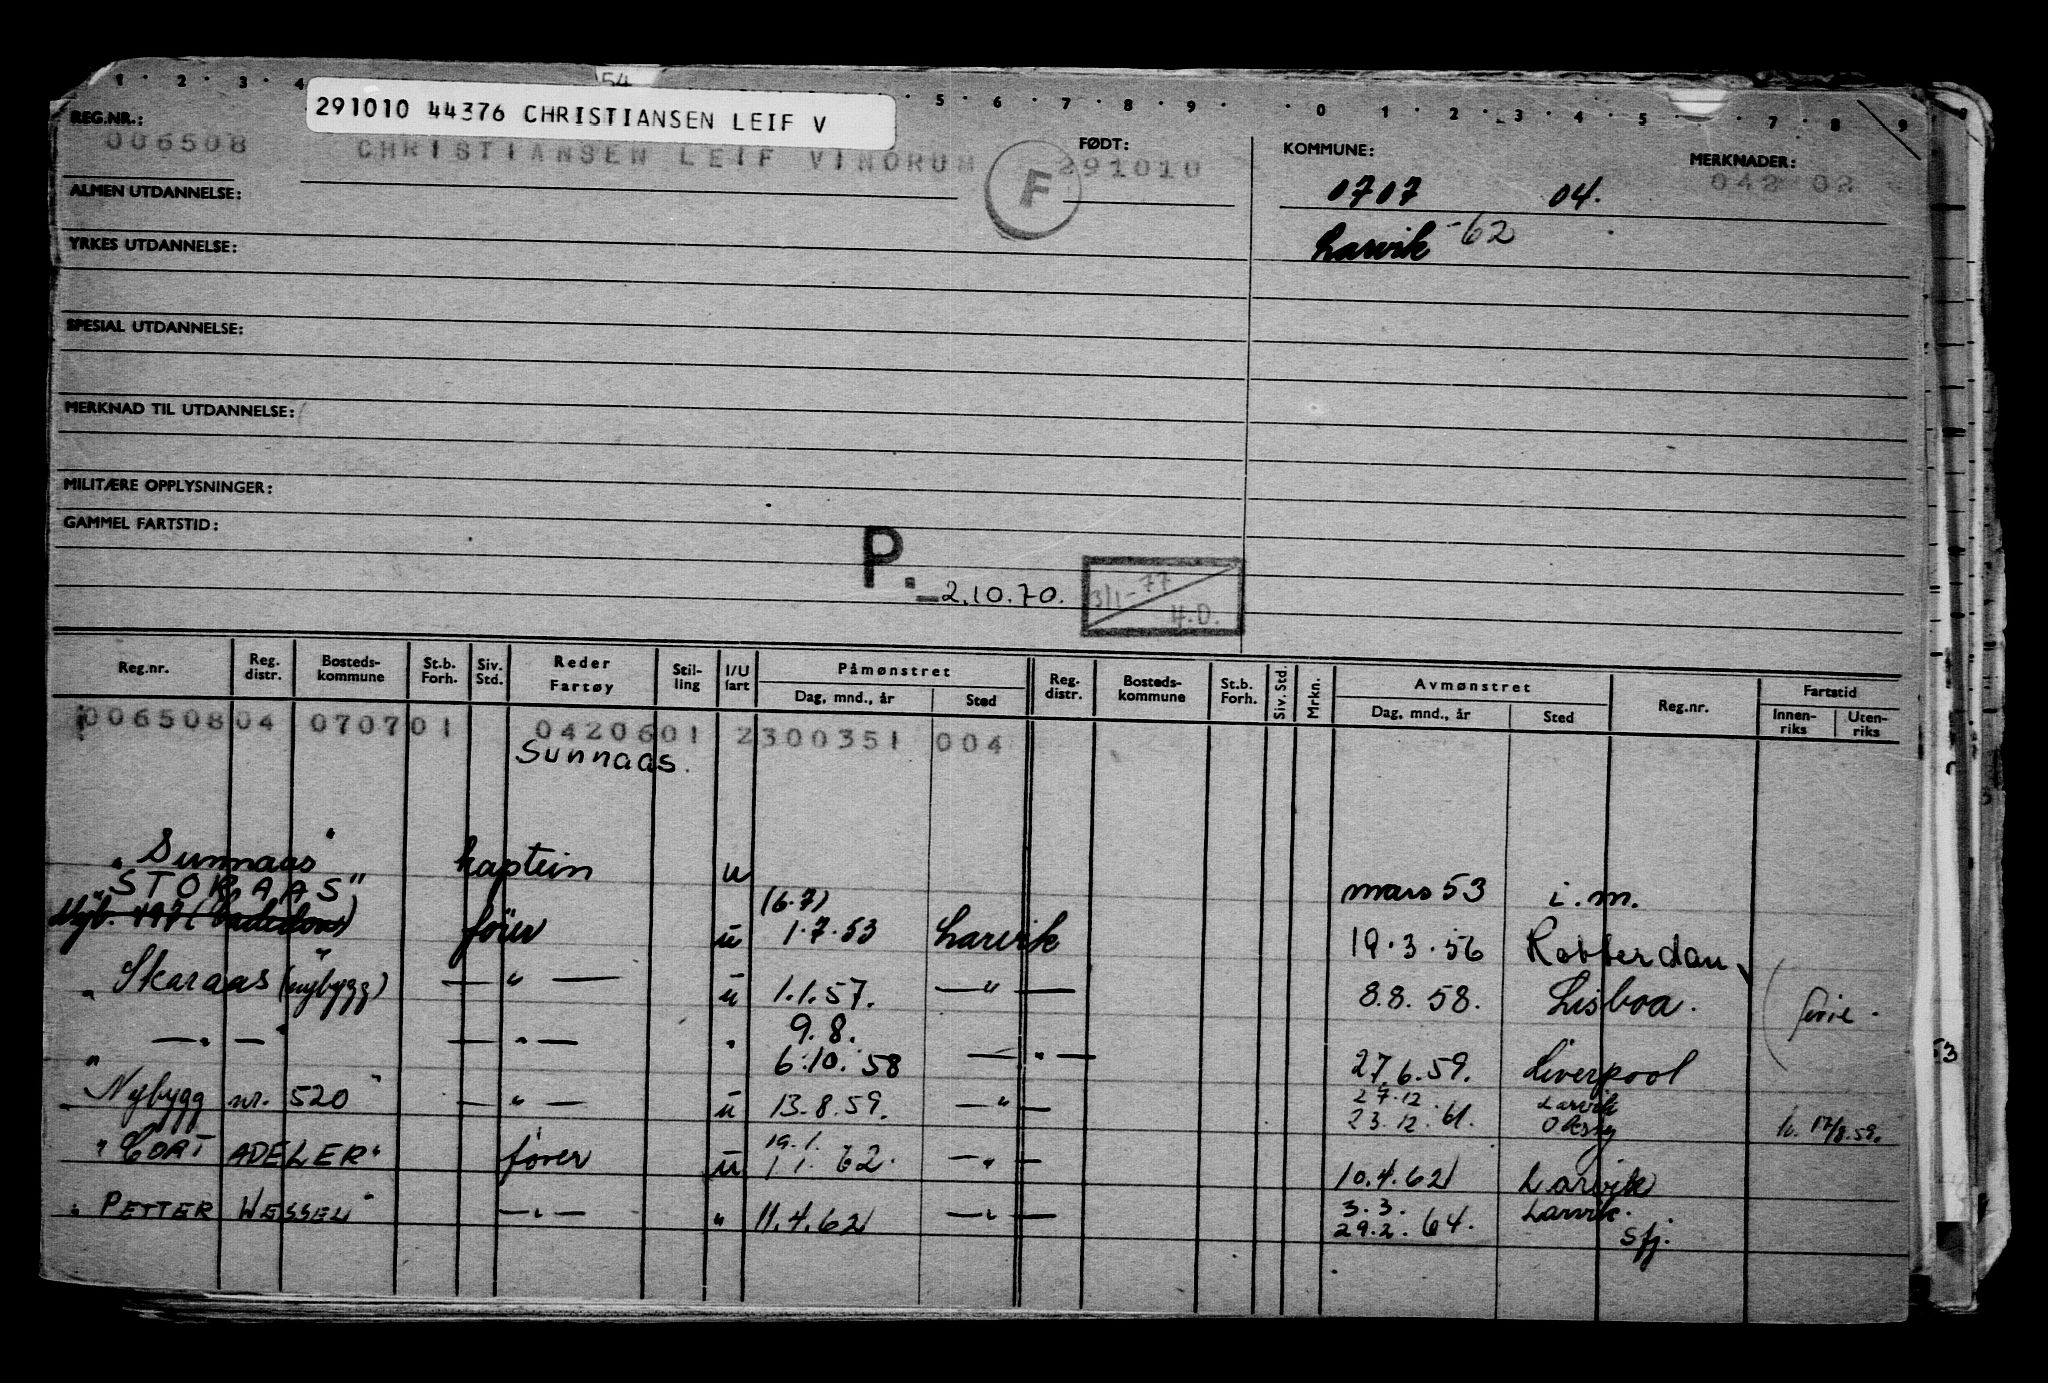 1 2 3 4 54 5 6 7 8 9 0 1 2 3 4 5 7 8 9
291010 44376 CHRISTIANSEN LEIF V
REG.NR.: FØDT: KOMMUNE: MERKNADER:
006508 CHRISTIANSEN LEIF VINDRUM F 291010 0707 04. 042 02
ALMEN UTDANNELSE:
Larvik -62
YRKES UTDANNELSE:
SPESIAL UTDANNELSE:
MERKNAD TIL UTDANNELSE:
MILITÆRE OPPLYSNINGER:
GAMMEL FARTSTID:
P. 2.10.70. 3/1-77 H.O.
Reg.nr. Reg. distr. Bosteds-kommune St.b. Forh. Siv. Std. Reder Fartøy Stil-ling I/U fart Påmønstret Dag, mnd., år Sted Reg. distr. Bosteds-kommune St.b. Forh. Siv. Std. Mrkn. Avmønstret Dag, mnd., år Sted Reg.nr. Fartstid Innen-riks Uten-riks
006508 04 0707 01 0420601 2 300351 004
Sunnaas.
"Sunnaas" kaptein u mars 53 i.m.
"STORAAS" (6.7)
Nyb. 497 fører u 1.7.53 Larvik 19.3.56 Rotterdam
"Skaraas" (nybygg) — " — u 1.1.57. — " — 8.8.58. Lisboa. ferie.
" — " — " — " — " 9.8.
6.10.58 — " — 27.6.59. Liverpool
"Nybygg nr. 520" — " — u 13.8.59. — " — 27.12. Larvik
23.12.61. h. 17/8.59.
"CORT ADELER" fører u 19.1.
1.1.62. — " — 10.4.62 Larvik
"PETTER WESSEL" — " — " 11.4.62 — " — 3.3. Larvik.
29.2.64. Sfj.